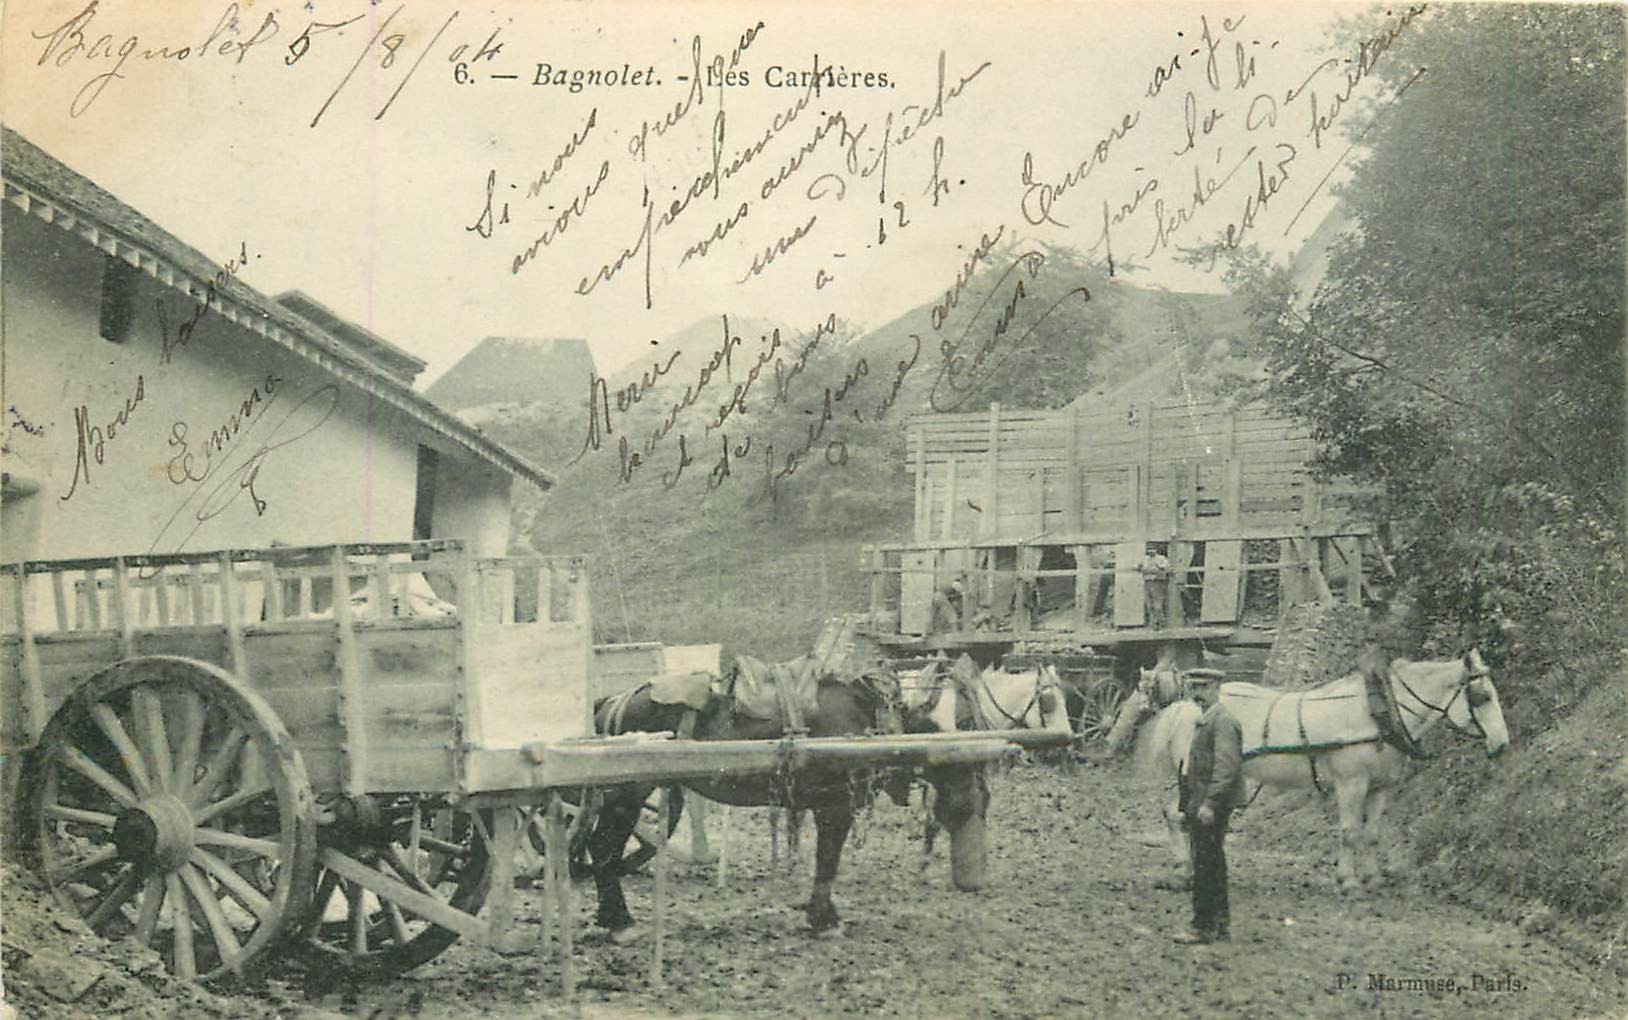 Bagnolet 5/8/04
6. — Bagnolet. - Les Carrières.
Si nous
avions quelques
empêchements
vous auriez
une dépêche
à 12 h.
Merci
beaucoup
et reçois
de bons
baisers
d'une amie
Emma
Encore ai-je
pris la li-
berté de
rester
Bons baisers.
Emma
P. Marmuse, Paris.